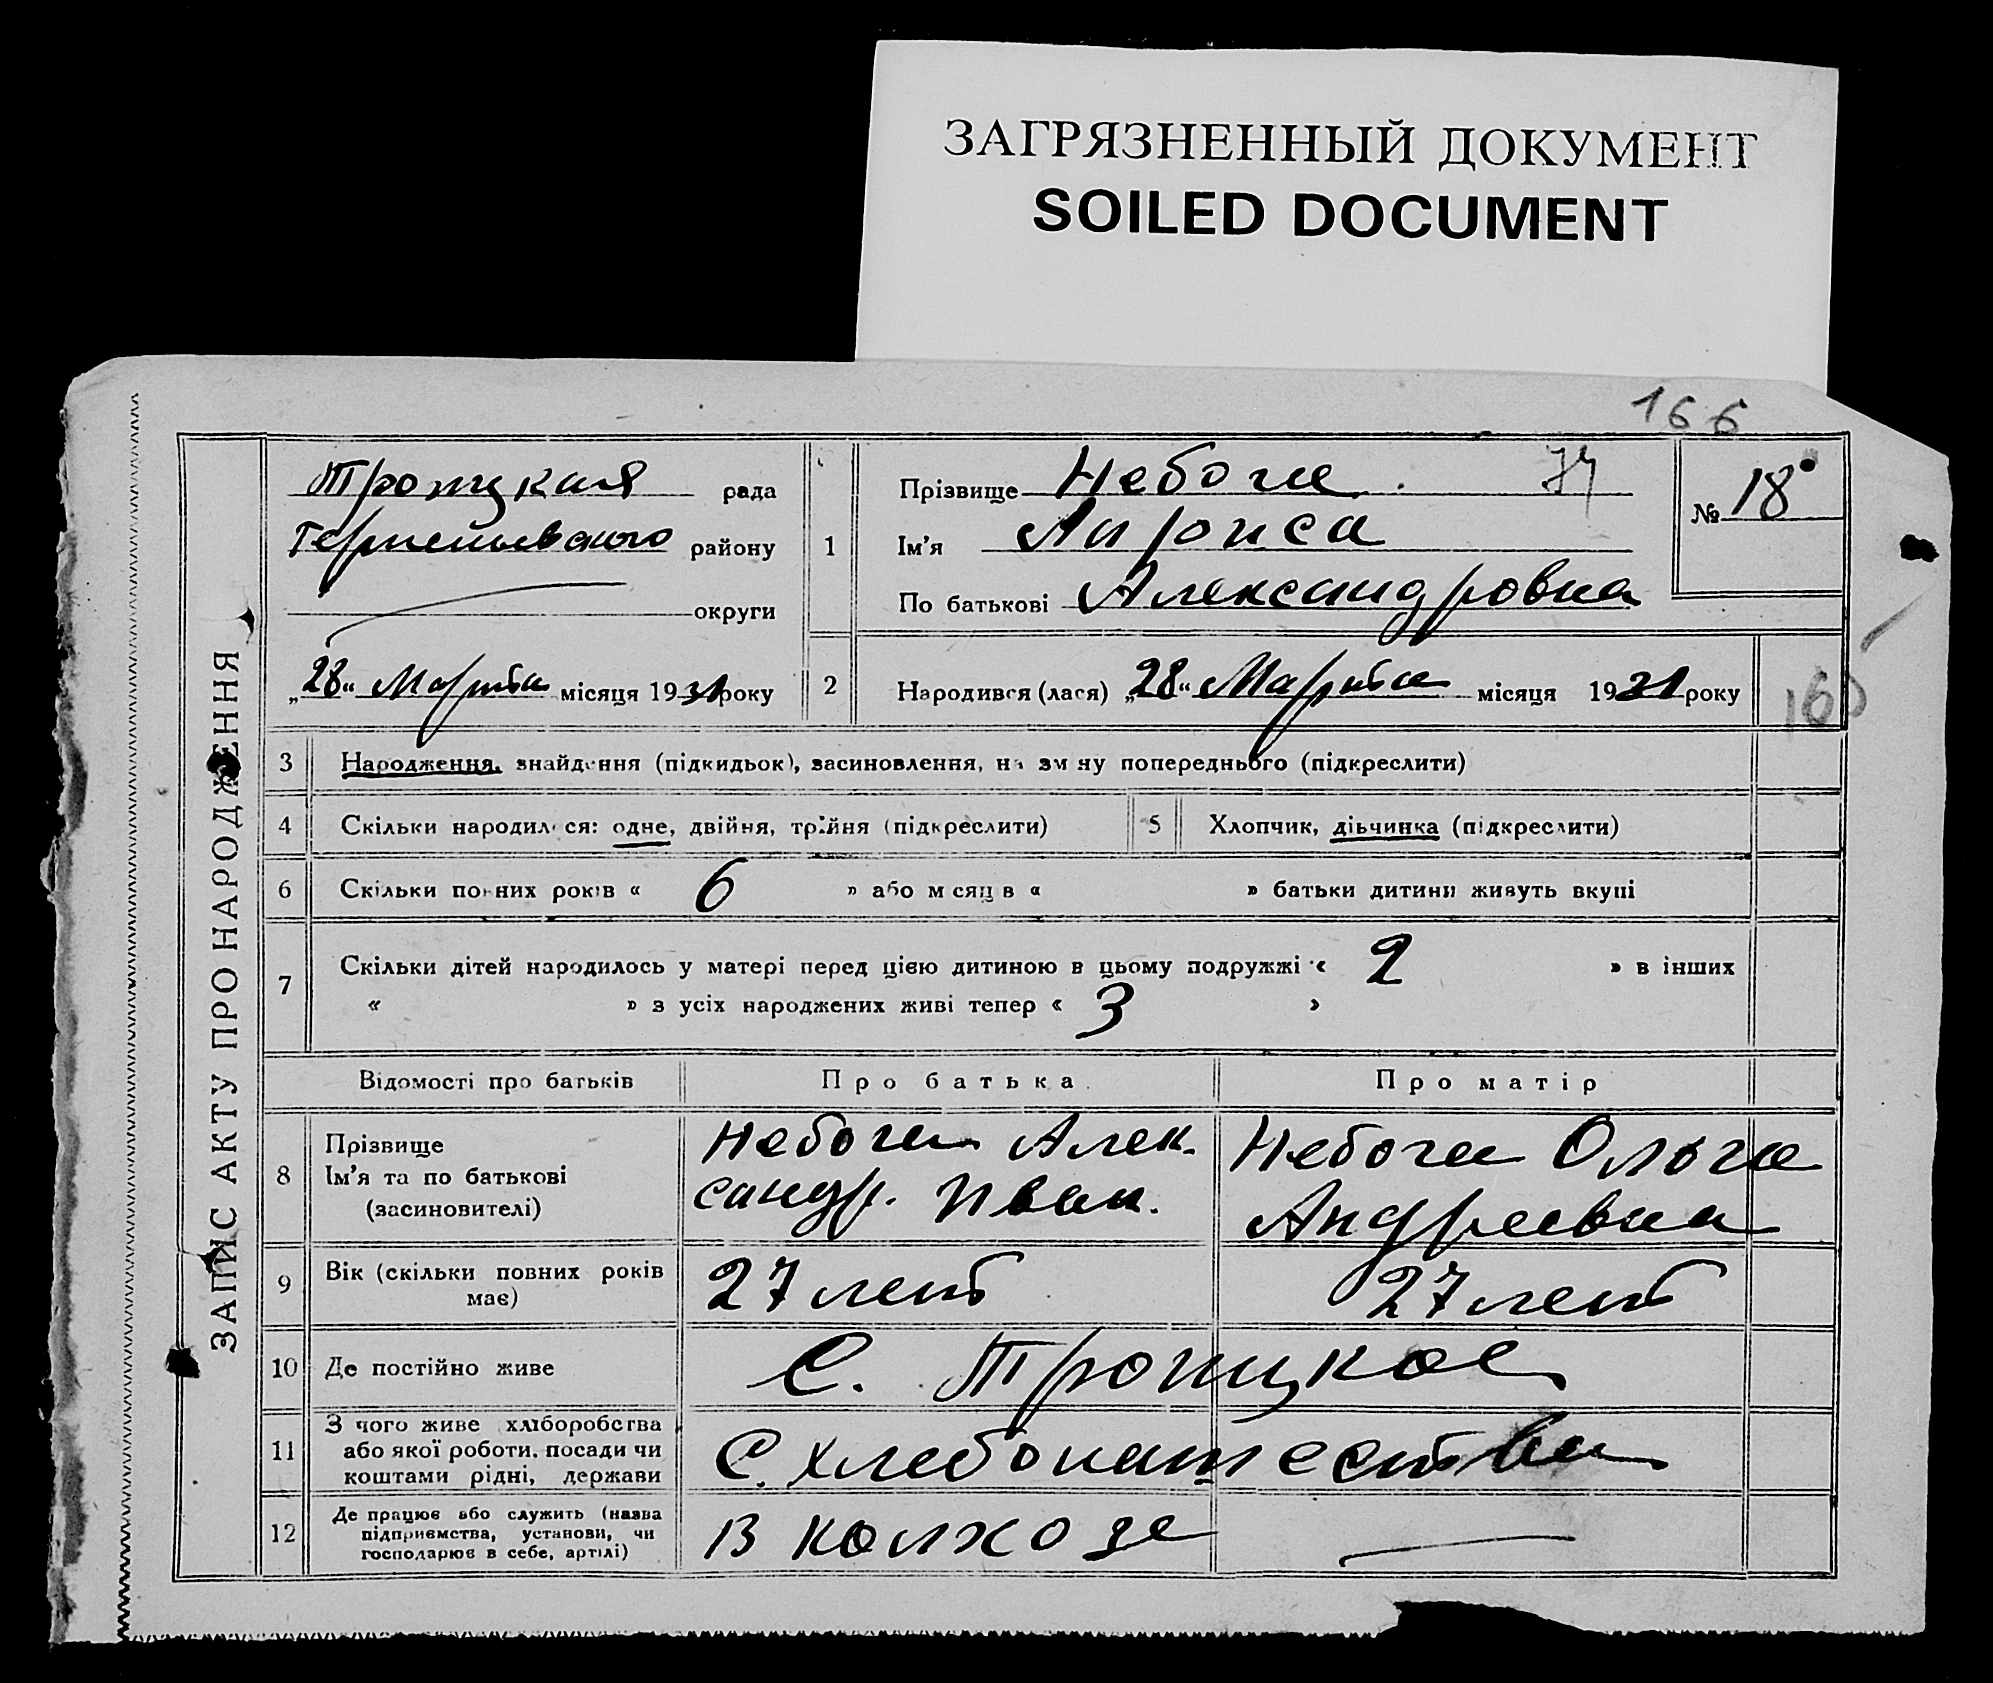 ЗАГРЯЗНЕННЫЙ ДОКУМЕНТ
SOILED DOCUMENT
166
ЗАПИС АКТУ ПРО НАРОДЖЕННЯ
Троицкая рада
району
округи
„28“ Марта місяця 1931 року
1
Прізвище Небога
Ім'я Лариса
По батькові Александровна
№ 18
2
Народився (лася) „28“ Марта місяця 1931 року
160
3 Народження, знайдення (підкидьок), засиновлення, на зміну попереднього (підкреслити)
4 Скільки народилося: одне, двійня, трійня (підкреслити)
5 Хлопчик, дівчинка (підкреслити)
6 Скільки повних років « 6 » або місяців « » батьки дитини живуть вкупі
7 Скільки дітей народилось у матері перед цією дитиною в цьому подружжі « 2 » в інших
« » з усіх народжених живі тепер « 3 »
Відомості про батьків Про батька Про матір
8
Прізвище
Ім'я та по батькові
(засиновителі)
Небога Алек-
сандр. Иван.
Небога Ольга
Андреевна
9
Вік (скільки повних років
має)
27 лет
27 лет
10 Де постійно живе
С. Троицкое
11
З чого живе хліборобства
або якої роботи, посади чи
коштами рідні, держави
С. хлебопашества
12
Де працює або служить (назва
підприємства, установи, чи
господарює в себе, артілі)
В колхозе